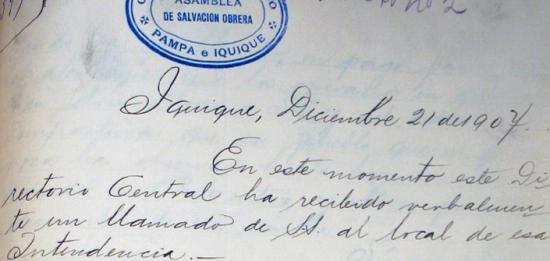 ASAMBLEA
DE SALVACION OBRERA
PAMPA e IQUIQUE
Nº 2
Iquique, Diciembre 21 de 1907.
En este momento este Di-
rectorio Central ha recibido verbalmen-
te un llamado de SS. al local de esa
Intendencia.—